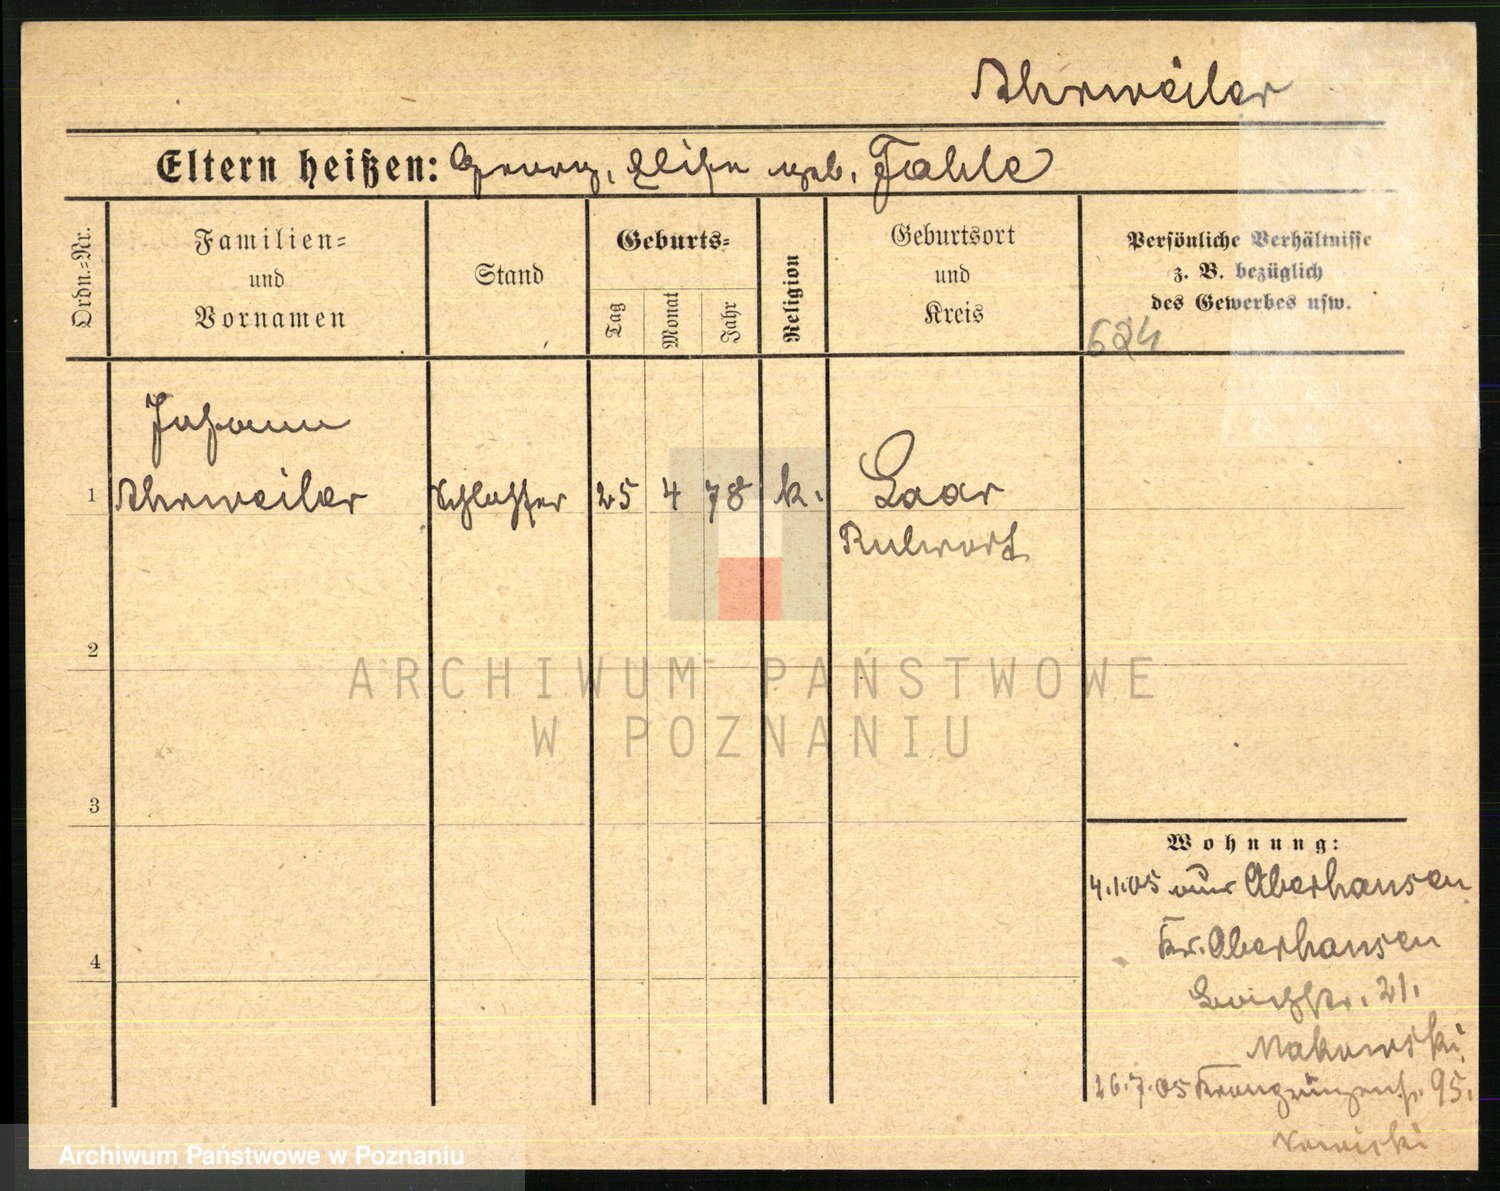 Ahrweiler
Eltern heißen: Georg, Elise geb. Fahle
Ordn.=Nr.
Familien=
und
Vornamen
Stand
Geburts=
Tag
Monat
Jahr
Religion
Geburtsort
und
Kreis
Persönliche Verhältnisse
z. B. bezüglich
des Gewerbes usw.
624
Johann
1 Ahrweiler Schlosser 25 4 78 k. Laar
Ruhrort
2
3
4
Wohnung:
4.1.05 aus Oberhausen
Kr. Oberhausen
21.
Makowski
26.7.05 Kronprinzenstr. 95.
ARCHIWUM PAŃSTWOWE
W POZNANIU
Archiwum Państwowe w Poznaniu